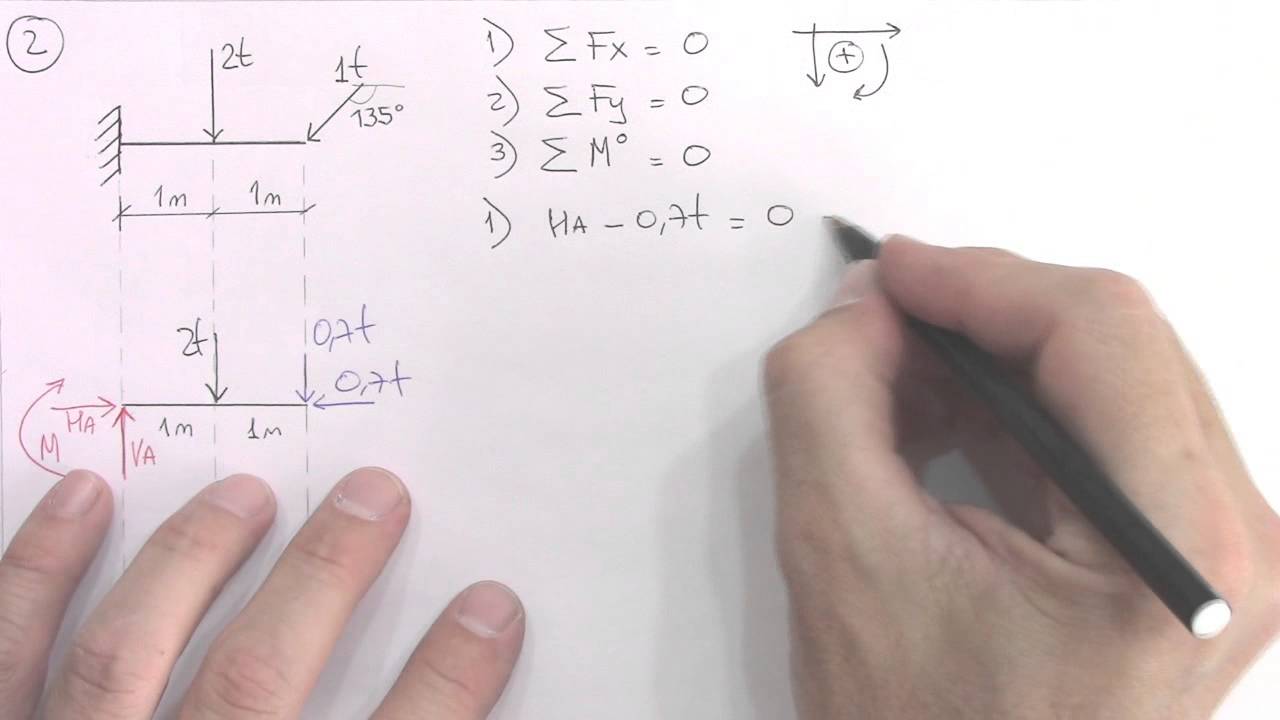 2
2t
1t
135°
1m 1m
2t
0,7t
0,7t
M HA VA
1m 1m
1) ΣFx = 0
2) ΣFy = 0
3) ΣM° = 0
1) HA - 0,7t = 0
+